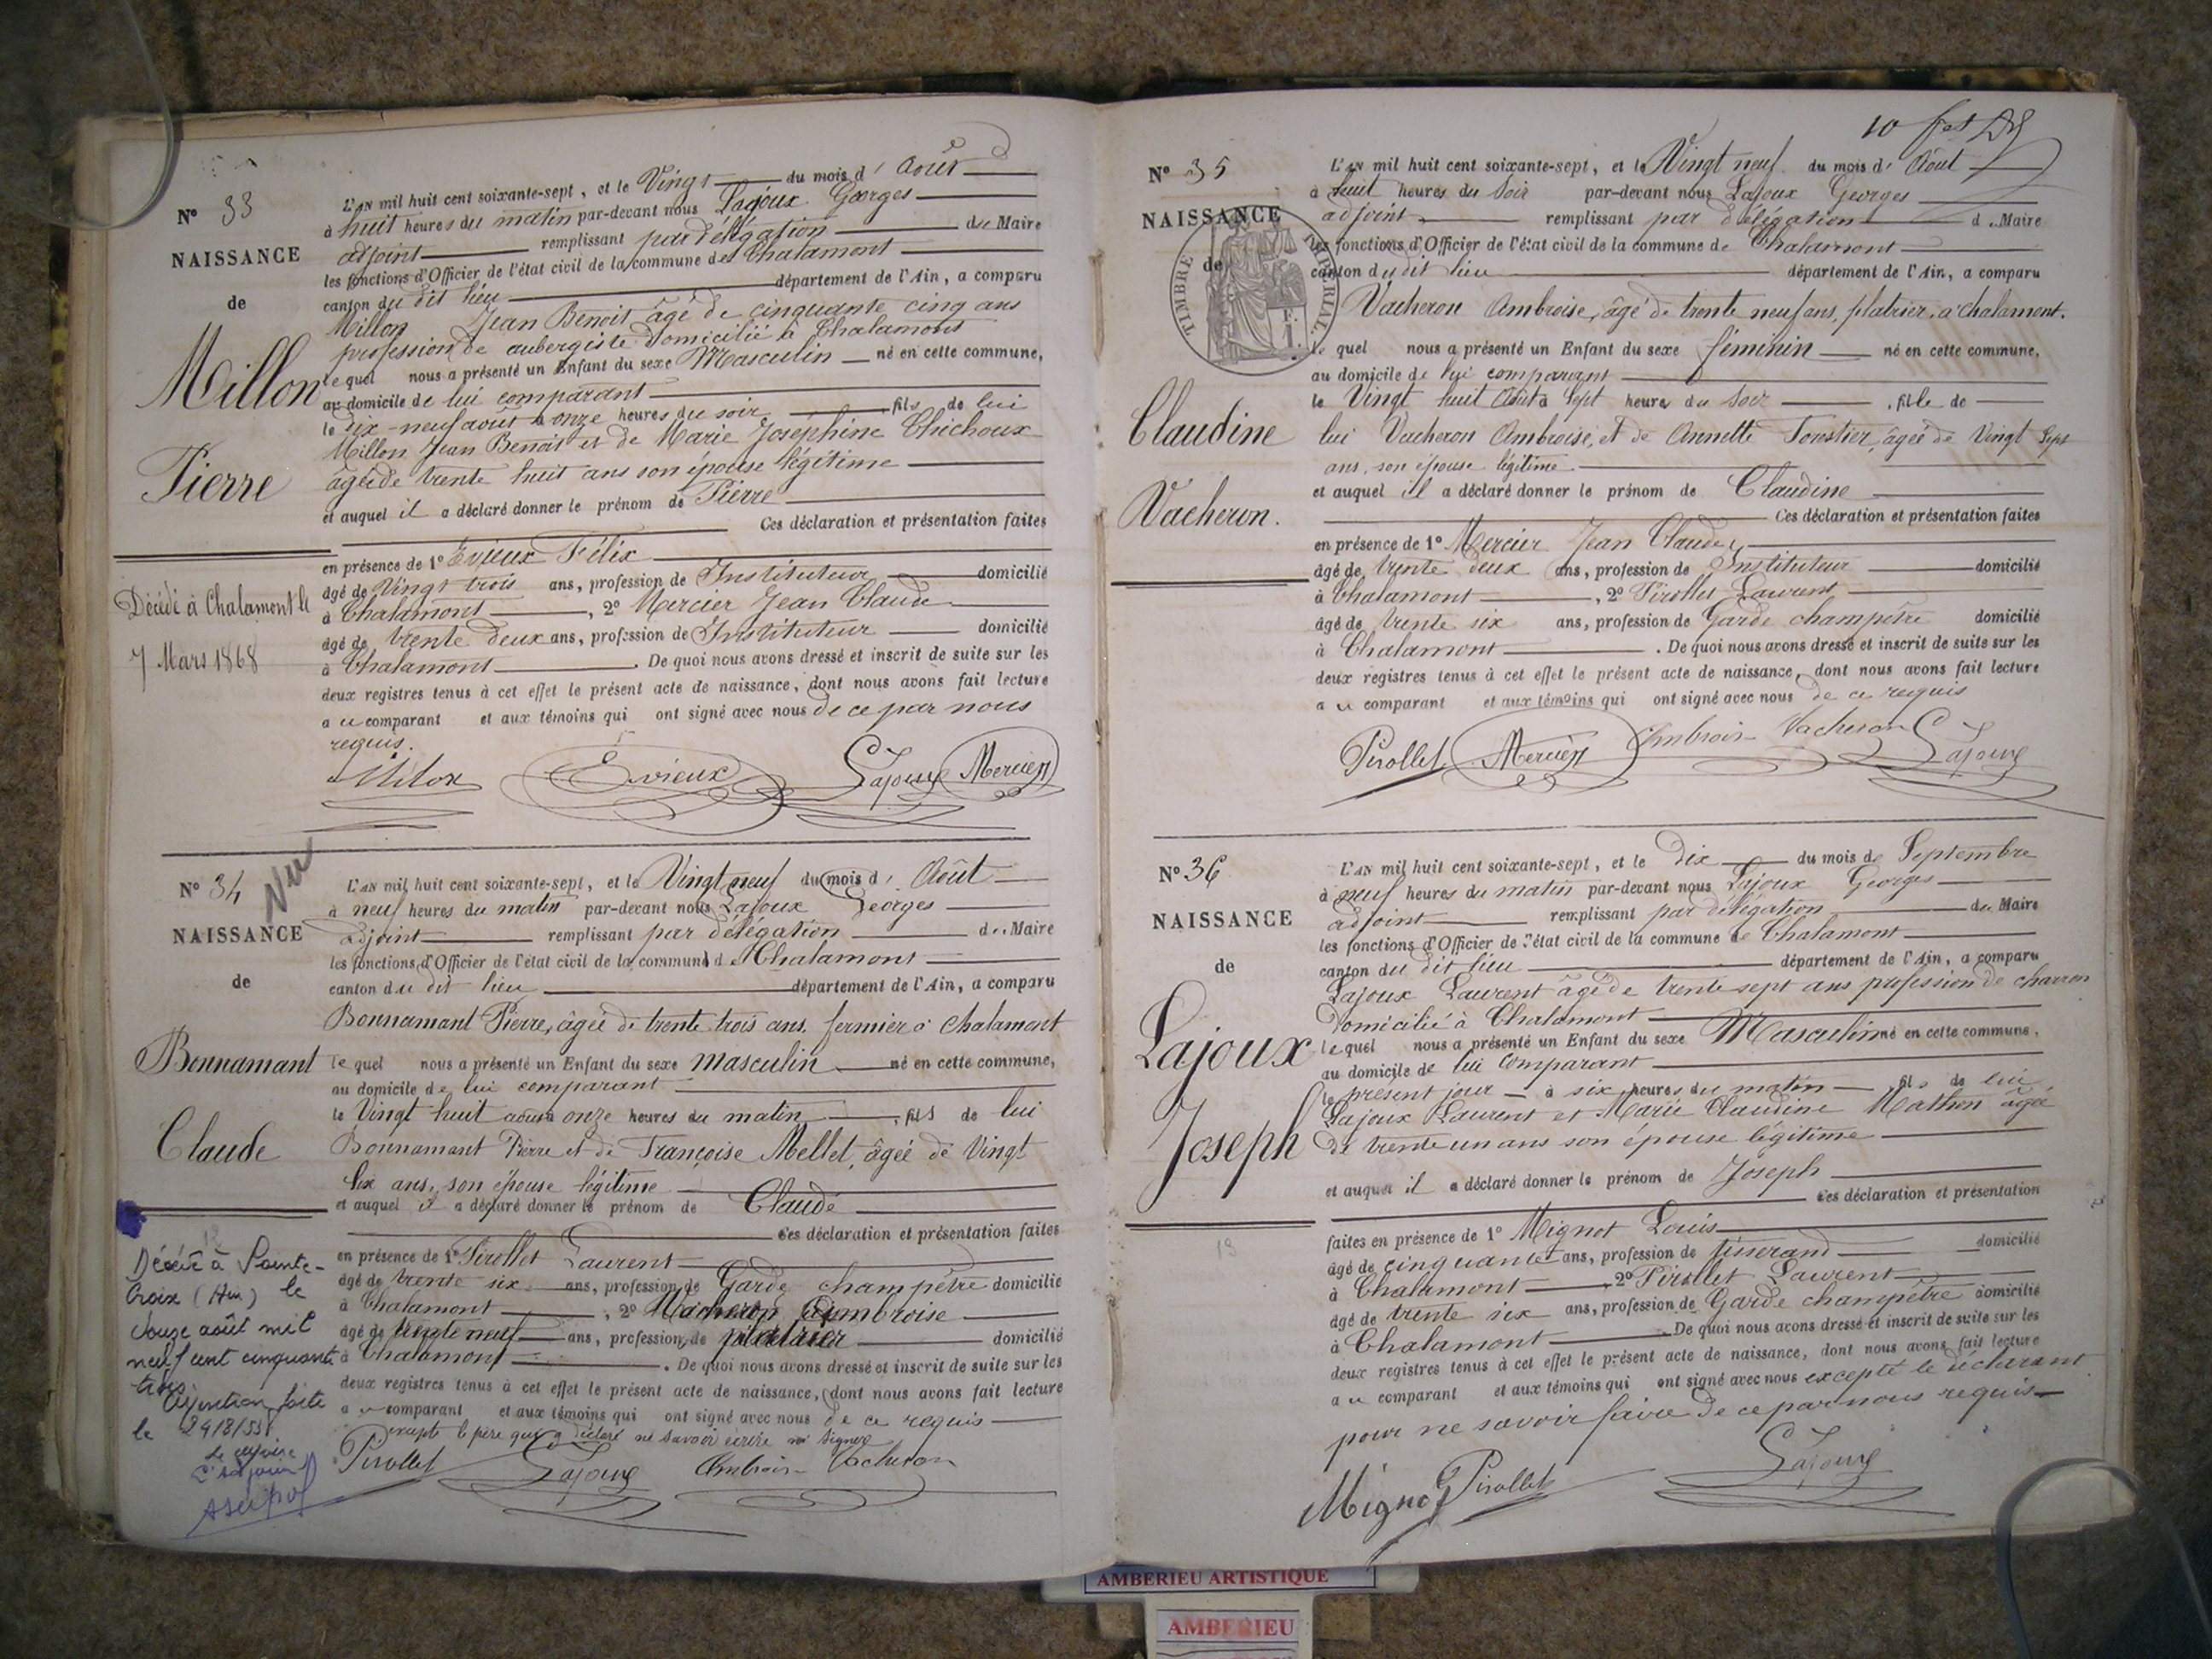 N° 33
NAISSANCE
de
Millon
Pierre
Décédé à Chalamont le
7 Mars 1868
L'AN mil huit cent soixante-sept, et le Vingt du mois d' Août
à huit heures du matin par-devant nous Lajoux Georges
adjoint remplissant par délégation du Maire
les fonctions d'Officier de l'état civil de la commune de Chalamont
canton du dit lieu département de l'Ain, a comparu
Millon Jean Benoit âgé de cinquante cinq ans
profession de aubergiste domicilié à Chalamont
lequel nous a présenté un Enfant du sexe Masculin né en cette commune,
au domicile de lui comparant
le dix-neuf août à onze heures du soir fils de lui
Millon Jean Benoit et de Marie Joséphine Chichoux
âgée de trente huit ans son épouse légitime
et auquel il a déclaré donner le prénom de Pierre
Ces déclaration et présentation faites
en présence de 1° Evieux Félix
âgé de Vingt trois ans, profession de Instituteur domicilié
à Chalamont, 2° Mercier Jean Claude
âgé de trente deux ans, profession de Instituteur domicilié
à Chalamont. De quoi nous avons dressé et inscrit de suite sur les
deux registres tenus à cet effet le présent acte de naissance, dont nous avons fait lecture
a u comparant et aux témoins qui ont signé avec nous de ce par nous
requis.
Milon Evieux Lajoux Mercier
N° 34
NAISSANCE
de
Bonnamant
Claude
Décédé à Sainte-
Croix (Ain) le
douze août mil
neuf cent cinquante
trois
Mention faite
le 24/8/53
L'AN mil huit cent soixante-sept, et le Vingt neuf du mois d' Août
à neuf heures du matin par-devant nous Lajoux Georges
adjoint remplissant par délégation du Maire
les fonctions d'Officier de l'état civil de la commune d Chalamont
canton du dit lieu département de l'Ain, a comparu
Bonnamant Pierre, âgée de trente trois ans, fermier à Chalamont
le quel nous a présenté un Enfant du sexe masculin né en cette commune,
au domicile de lui comparant
le Vingt huit août à onze heures du matin, fils de lui
Bonnamant Pierre et de Françoise Mellet, âgée de Vingt
Six ans, son épouse légitime
et auquel il a déclaré donner le prénom de Claude
Ces déclaration et présentation faites
en présence de 1° Pirollet Laurent
âgé de trente six ans, profession de Garde champêtre domicilié
à Chalamont, 2° Vacheron Ambroise
âgé de trente neuf ans, profession de platrier domicilié
à Chalamont. De quoi nous avons dressé et inscrit de suite sur les
deux registres tenus à cet effet le présent acte de naissance, dont nous avons fait lecture
a u comparant et aux témoins qui ont signé avec nous de ce requis
excepté le père qui a déclaré ne savoir écrire ni signer
Pirollet Lajoux Ambrois Vacheron
N° 35
NAISSANCE
de
TIMBRE IMPERIAL.
Claudine
Vacheron.
L'AN mil huit cent soixante-sept, et le Vingt neuf du mois d' Août
à huit heures du Soir par-devant nous Lajoux Georges
adjoint remplissant par délégation d Maire
les fonctions d'Officier de l'état civil de la commune de Chalamont
canton du dit lieu département de l'Ain, a comparu
Vacheron Ambroise, âgé de trente neuf ans, platrier, à chalamont.
le quel nous a présenté un Enfant du sexe féminin né en cette commune,
au domicile de lui comparant
le Vingt huit Août à Sept heures du Soir, fille de
lui Vacheron Ambroise, et de Annette Foustier, âgée de Vingt Sept
ans, son épouse légitime
et auquel il a déclaré donner le prénom de Claudine
Ces déclaration et présentation faites
en présence de 1° Mercier Jean Claude,
âgé de trente deux ans, profession de Instituteur domicilié
à Chalamont, 2° Pirollet Laurent
âgé de trente six ans, profession de Garde champêtre domicilié
à Chalamont. De quoi nous avons dressé et inscrit de suite sur les
deux registres tenus à cet effet le présent acte de naissance, dont nous avons fait lecture
a u comparant et aux témoins qui ont signé avec nous de ce requis
Pirollet Mercier Ambrois Vacheron Lajoux
N° 36
NAISSANCE
de
Lajoux
Joseph
L'AN mil huit cent soixante-sept, et le dix du mois de Septembre
à neuf heures du matin par-devant nous Lajoux Georges
adjoint remplissant par délégation du Maire
les fonctions d'Officier de l'état civil de la commune de Chalamont
canton du dit lieu département de l'Ain, a comparu
Lajoux Laurent âgé de trente sept ans profession de charron
domicilié à Chalamont
lequel nous a présenté un Enfant du sexe Masculin né en cette commune,
au domicile de lui comparant
le présent jour à six heures du matin, fils de lui
Lajoux Laurent et Marie Claudine Mathon âgée
de trente un ans son épouse légitime
et auquel il a déclaré donner le prénom de Joseph
Ces déclaration et présentation
faites en présence de 1° Mignot Louis
âgé de cinquante ans, profession de tisserand domicilié
à Chalamont, 2° Pirollet Laurent
âgé de trente six ans, profession de Garde champêtre domicilié
à Chalamont. De quoi nous avons dressé et inscrit de suite sur les
deux registres tenus à cet effet le présent acte de naissance, dont nous avons fait lecture
a u comparant et aux témoins qui ont signé avec nous excepté le déclarant
pour ne savoir faire de ce par nous requis
Mignot Pirollet Lajoux
AMBERIEU ARTISTIQUE
AMBERIEU